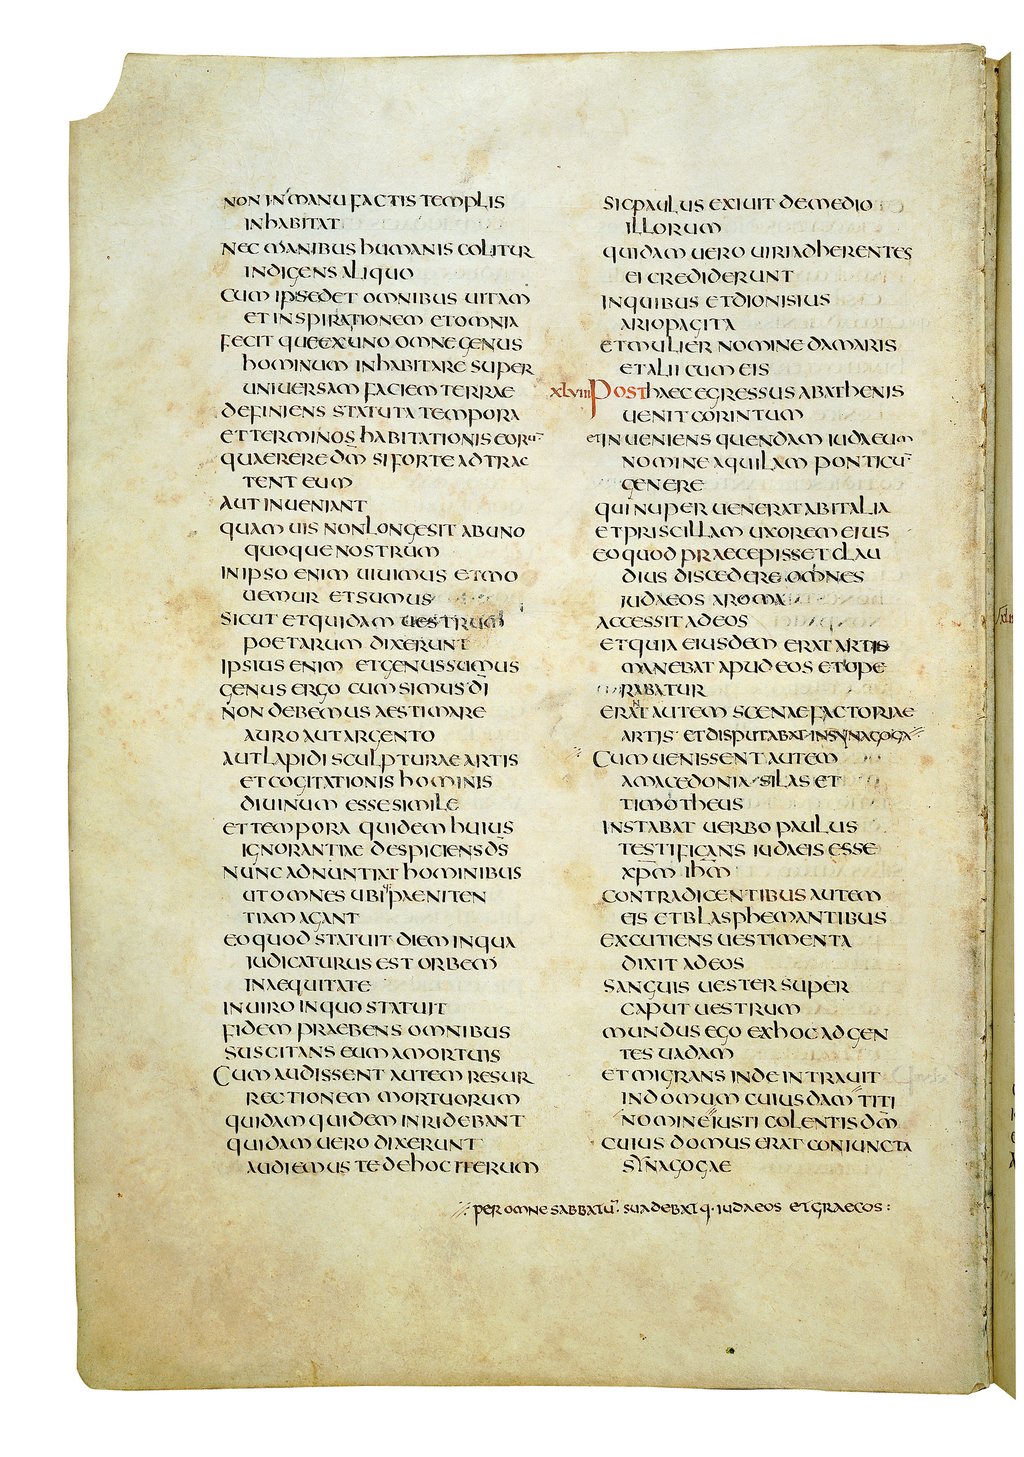 NON IN MANU FACTIS TEMPLIS
INHABITAT
NEC MANIBUS HUMANIS COLITUR
INDIGENS ALIQUO
CUM IPSE DET OMNIBUS UITAM
ET INSPIRATIONEM ET OMNIA
FECIT QUE EX UNO OMNE GENUS
HOMINUM INHABITARE SUPER
UNIUERSAM FACIEM TERRAE
DEFINIENS STATUTA TEMPORA
ET TERMINOS HABITATIONIS EORUM
QUAERERE DM̄ SI FORTE ADTRAC
TENT EUM
AUT INUENIANT
QUAM UIS NON LONGE SIT AB UNO
QUOQUE NOSTRUM
IN IPSO ENIM UIUIMUS ET MO
UEMUR ET SUMUS
SICUT ET QUIDAM UESTRUM
POETARUM DIXERUNT
IPSIUS ENIM ET GENUS SUMUS
GENUS ERGO CUM SIMUS DĪ
NON DEBEMUS AESTIMARE
AURO AUT ARGENTO
AUT LAPIDI SCULPTURAE ARTIS
ET COGITATIONIS HOMINIS
DIUINUM ESSE SIMILE
ET TEMPORA QUIDEM HUIUS
IGNORANTIAE DESPICIENS DS̄
NUNC ADNUNTIAT HOMINIBUS
UT OMNES UBIQ PAENITEN
TIAM AGANT
EO QUOD STATUIT DIEM IN QUA
IUDICATURUS EST ORBEM
IN AEQUITATE
IN UIRO IN QUO STATUIT
FIDEM PRAEBENS OMNIBUS
SUSCITANS EUM A MORTUIS
CUM AUDISSENT AUTEM RESUR
RECTIONEM MORTUORUM
QUIDAM QUIDEM INRIDEBANT
QUIDAM UERO DIXERUNT
AUDIEMUS TE DE HOC ITERUM
SIC PAULUS EXIUIT DE MEDIO
ILLORUM
QUIDAM UERO UIRI ADHERENTES
EI CREDIDERUNT
IN QUIBUS ET DIONISIUS
ARIOPAGITA
ET MULIER NOMINE DAMARIS
ET ALII CUM EIS
XLVIII POST HAEC EGRESSUS AB ATHENIS
UENIT CORINTUM
ET INUENIENS QUENDAM IUDAEUM
NOMINE AQUILAM PONTICŪ
GENERE
QUI NUPER UENERAT AB ITALIA
ET PRISCILLAM UXOREM EIUS
EO QUOD PRAECEPISSET CLAU
DIUS DISCEDERE OMNES
IUDAEOS A ROMA
ACCESSIT AD EOS
ET QUIA EIUSDEM ERAT ARTIS
MANEBAT APUD EOS ET OPE
RABATUR
ERANT AUTEM SCENAEFACTORIAE
ARTIS ET DISPUTABAT IN SYNAGOGA
CUM UENISSENT AUTEM
A MACEDONIA SILAS ET
TIMOTHEUS
INSTABAT UERBO PAULUS
TESTIFICANS IUDAEIS ESSE
XPM̄ IHM̄
CONTRADICENTIBUS AUTEM
EIS ET BLASPHEMANTIBUS
EXCUTIENS UESTIMENTA
DIXIT AD EOS
SANGUIS UESTER SUPER
CAPUT UESTRUM
MUNDUS EGO EX HOC AD GEN
TES UADAM
ET MIGRANS INDE INTRAUIT
IN DOMUM CUIUSDAM TITI
NOMINE IUSTI COLENTIS DM̄
CUIUS DOMUS ERAT CONIUNCTA
SYNAGOGAE
PER OMNE SABBATŪ. SUADEBAT Q. IUDAEOS ET GRAECOS: